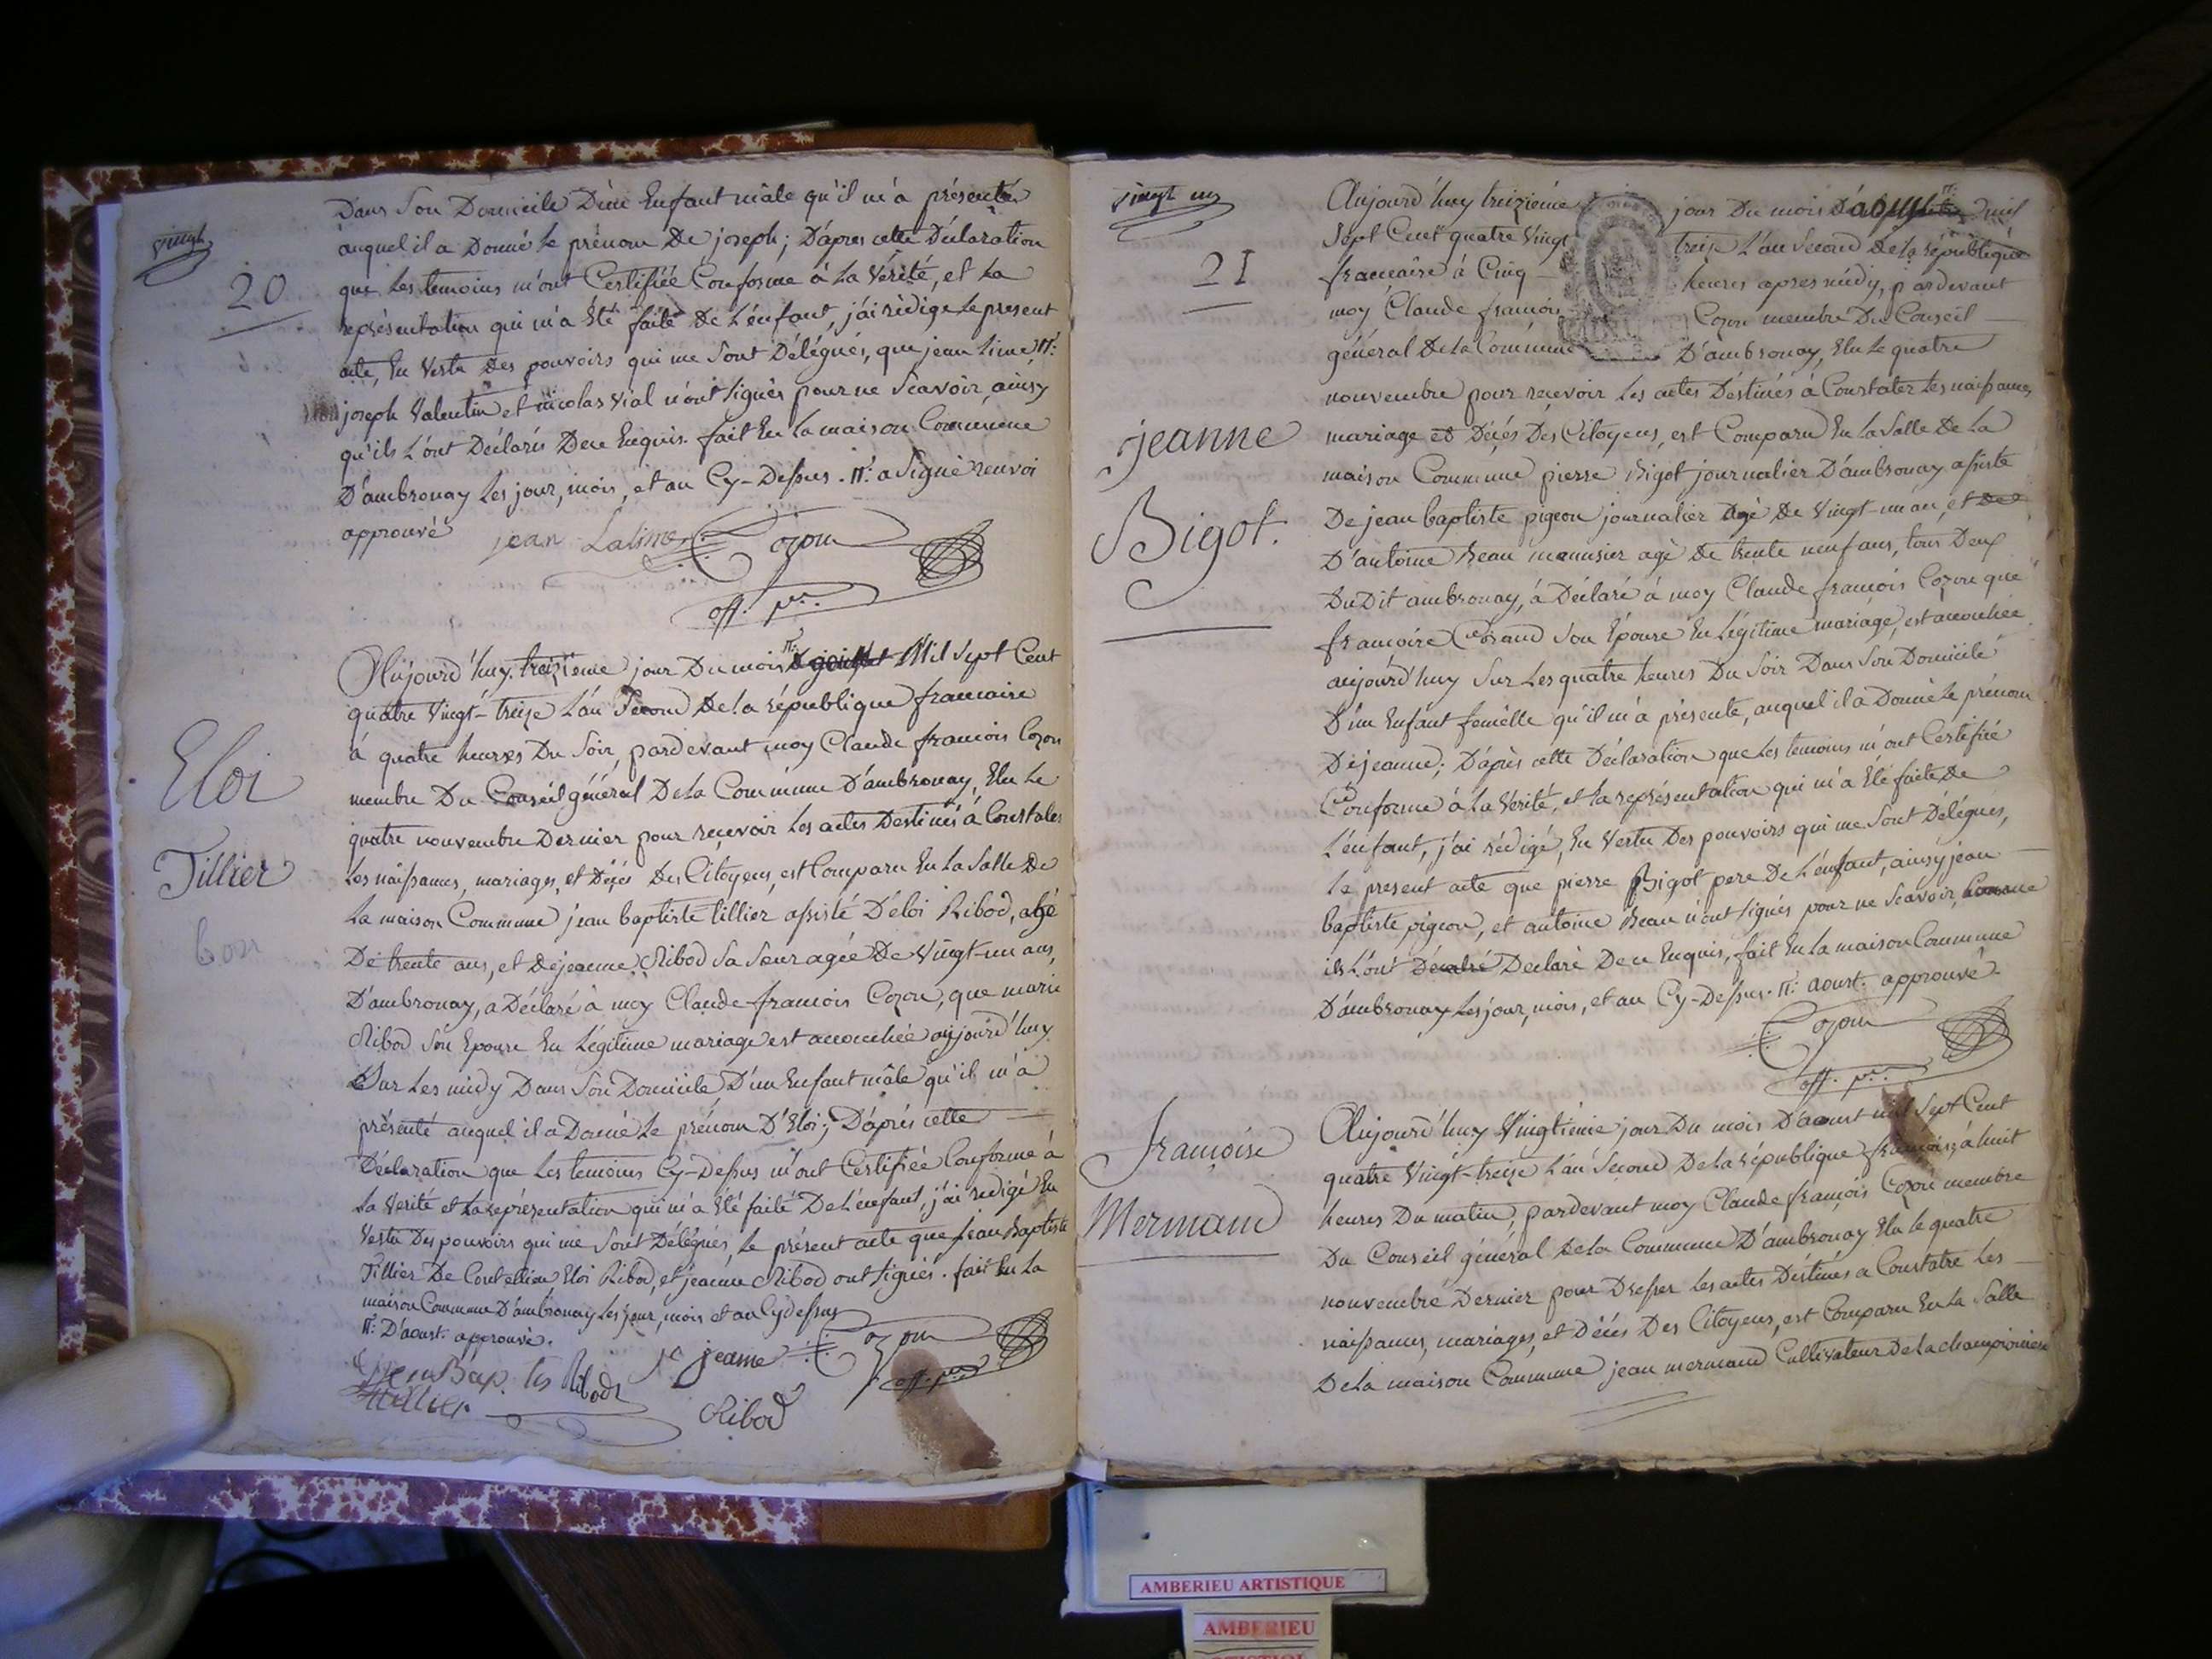 vingt
20
Dans son Domicile D'un Enfant mâle qu'il m'a présenté
auquel il a Donné le prénom De joseph; D'apres cette Déclaration
que les temoins m'ont Certifiée Conforme à la Vérité, et la
représentation qui m'a Eté faite De L'énfant, j'ai rédige le present
acte, En Vertu des pouvoirs qui me sont Délégués, que jean
joseph Valentin et nicolas Vial n'ont signés pour ne Scavoir, ainsy
qu'ils L'ont Déclarés De ce Enquis. fait En la maison Commune
D'ambronay les jour, mois, et an Cy-Dessus. a Signé renvoi
approuvé
jean Cozon
off. p.er
Eloi
Tillier
bon
Aujourd'huy treizieme jour Du mois Mil Sept Cent
quatre Vingt-treize L'an Second De la république francaise
à quatre heures Du Soir, pardevant moy Claude francois Cozon
membre Du Conseil général De la Commune D'ambronay, Elu Le
quatre nouvembre Dernier pour recevoir Les actes Destinés à Constater
Les naissances, mariages, et Décés Des Citoyens, est Comparu En La Salle De
La maison Commune jean baptiste tillier assisté D'éloi Ribod, agé
De trente ans, et De jeanne Ribod Sa Sœur agée De Vingt-un ans,
D'ambronay, a Déclaré à moy Claude francois Cozon, que marie
Ribod Son Epouse En Légitime mariage est accouchée aujourd'huy
Sur Les midy Dans Son Domicile D'un Enfant mâle qu'il m'a
présenté auquel il a Donné Le prénom D'Eloi; D'aprés cette
Déclaration que Les temoins Cy-Dessus m'ont Certifiée Conforme à
La Verité et La représentation qui m'a Eté faite De L'énfant, j'ai redigé En
Vertu Des pouvoirs qui me Sont Délégués, Le présent acte que jean Baptiste
Tillier Eloi Ribod, et jeanne Ribod ont signés. fait En La
maison Commune D'ambronay Les jour, mois et an Cy dessus
D'aoust. approuvé.
jean Bap. tis Ribod jeanne Cozon
tillier Ribod off. p.er
vingt un
21
Aujourd'huy treizieme jour Du mois D'aoust mil
Sept Cent quatre Vingt treize L'an Second De la république
francaise à Cinq heures apres midy, pardevant
moy Claude francois Cozon membre Du Conseil
général De la Commune D'ambronay, Elu Le quatre
nouvembre pour recevoir Les actes Déstinés à Constater Les naissances,
jeanne
Bigot.
mariage et Décés Des Citoyens, est Comparu En La Salle De La
maison Commune pierre Bigot journalier D'ambronay assisté
De jean baptiste pigeon journalier agé De Vingt-un an, et De
D'antoine Beau menusier agé De trente neuf ans, tous Deux
Du Dit ambronay, à Déclaré à moy Claude francois Cozon que
francoise Son Epouse En Légitime mariage, est accouchée
aujourd'huy Sur Les quatre heures Du Soir Dans Son Domicile
D'un Enfant femelle qu'il m'a présenté, auquel il a Donné Le prénom
De jeanne; D'après cette Déclaration que Les temoins m'ont Certifié
Conforme à La Vérité, et La représentation qui m'a Eté faite De
L'énfant, j'ai rédigé, En Vertu Des pouvoirs qui me Sont Délégués,
Le present acte que pierre Bigot pere De L'énfant, ainsy jean
baptiste pigeon, et antoine Beau n'ont signés pour ne Scavoir, Comme
ils L'ont Declaré De ce Enquis, fait En La maison Commune
D'ambronay Les jour, mois, et an Cy-Dessus. aoust. approuvé.
Cozon
off. p.er
francoise
Mermand
Aujourd'huy Vingtiéme jour Du mois D'aoust mil Sept Cent
quatre Vingt-treize L'an Second De La république francoise, à huit
heures Du matin, pardevant moy Claude francois Cozon membre
Du Conseil général De La Commune D'ambronay Elu Le quatre
nouvembre Dernier pour Dresser Les actes Déstinés a Constatre Les
naissances, mariages, et Décés Des Citoyens, est Comparu En La Salle
De La maison Commune jean mermand Cultivateur De La championiere
AMBERIEU ARTISTIQUE
AMBERIEU